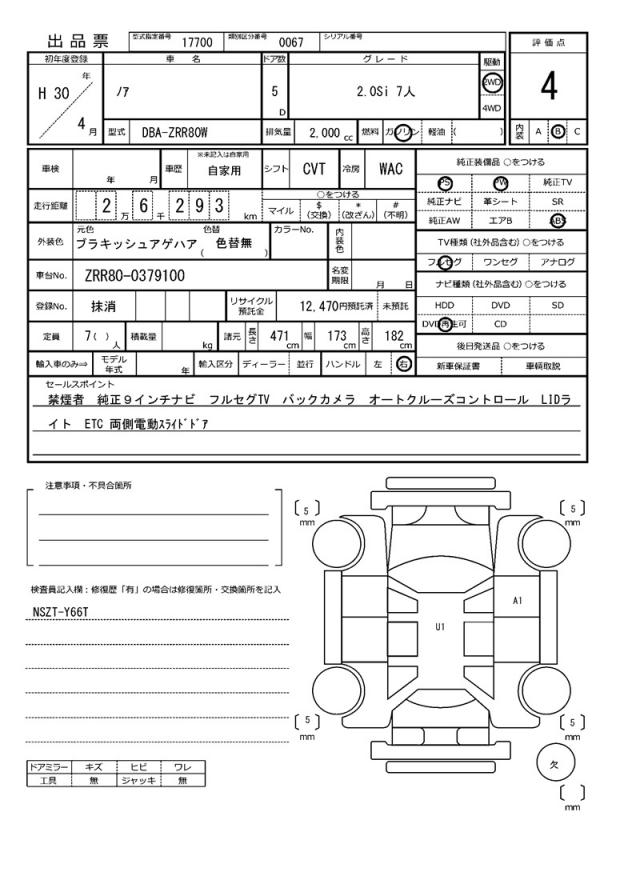 出品票 型式指定番号 17700 類別区分番号 0067 シリアル番号
評価点
初年度登録 車名 ドア数 グレード 駆動
H 30 年 ﾉｱ 5 D 2.0Si 7人 2WD 4WD
4
4 月 型式 DBA-ZRR80W 排気量 2,000 cc 燃料 ガソリン 軽油 ( ) 内装 A B C
車検 年 月 車歴 ※未記入は自家用 自家用 シフト CVT 冷房 WAC
走行距離 2 万 6 千 2 9 3 km ○をつける マイル $(交換) *(改ざん) #(不明)
外装色 元色 ブラキッシュアゲハア 色替 ( 色替無 ) カラーNo. 内装色
車台No. ZRR80-0379100 名変期限 月 日
登録No. 抹消 リサイクル預託金 12,470円預託済 未預託
定員 7 ( ) 人 積載量 kg 諸元 長さ 471 cm 幅 173 cm 高さ 182 cm
輸入車のみ⇒ モデル年式 年 輸入区分 ディーラー 並行 ハンドル 左 右
純正装備品 ○をつける
PS PW 純正TV
純正ナビ 革シート SR
純正AW エアB ABS
TV種類 (社外品含む) ○をつける
フルセグ ワンセグ アナログ
ナビ種類 (社外品含む) ○をつける
HDD DVD SD
DVD再生可 CD
後日発送品 ○をつける
新車保証書 車輌取説
セールスポイント
禁煙者 純正９インチナビ フルセグTV バックカメラ オートクルーズコントロール LIDラ
イト ETC 両側電動ｽﾗｲﾄﾞﾄﾞｱ
注意事項・不具合箇所
検査員記入欄：修復歴「有」の場合は修復箇所・交換箇所を記入
NSZT-Y66T
ドアミラー キズ ヒビ ワレ
工具 無 ジャッキ 無
5 mm
5 mm
A1
U1
5 mm
5 mm
欠
mm